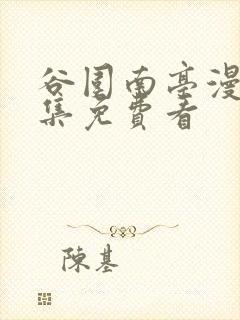 谷围南亭漫
集免费看
陳基